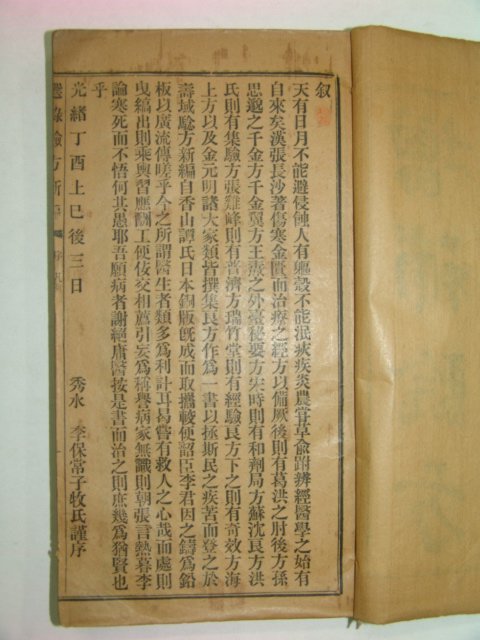 叙
天有日月不能避侵蝕人有軀殼不能泯疢疾炎農嘗草兪跗辨經醫學之始有
自來矣漢張長沙著傷寒金匱而治療之經方以備厥後則有葛洪之肘後方孫
思邈之千金方千金翼方王燾之外臺秘要方宋時則有和劑局方蘇沈良方洪
氏則有集驗方張雞峰則有普濟方瑞竹堂則有經驗良方下之則有奇效方海
上方以及金元明諸大家類皆撰集良方作爲一書以拯斯民之疾苦而登之於
壽域驗方新編自香山譚氏日本銅版旣成而取攜較便韶臣李君因之鑄爲鉛
板以廣流傳嗟乎今之所謂醫生者類多爲利計耳曷嘗有救人之心哉而處則
曳縞出則乘輿習應酬工便佞交相薦引妄爲稱譽病家無識則朝張言熱暮李
論寒死而不悟何其愚耶吾願病者謝絕庸醫按是書而治之則庶幾爲猶賢也
乎
光緒丁酉上巳後三日
秀水 李保常子牧氏謹序
選錄驗方新編 序